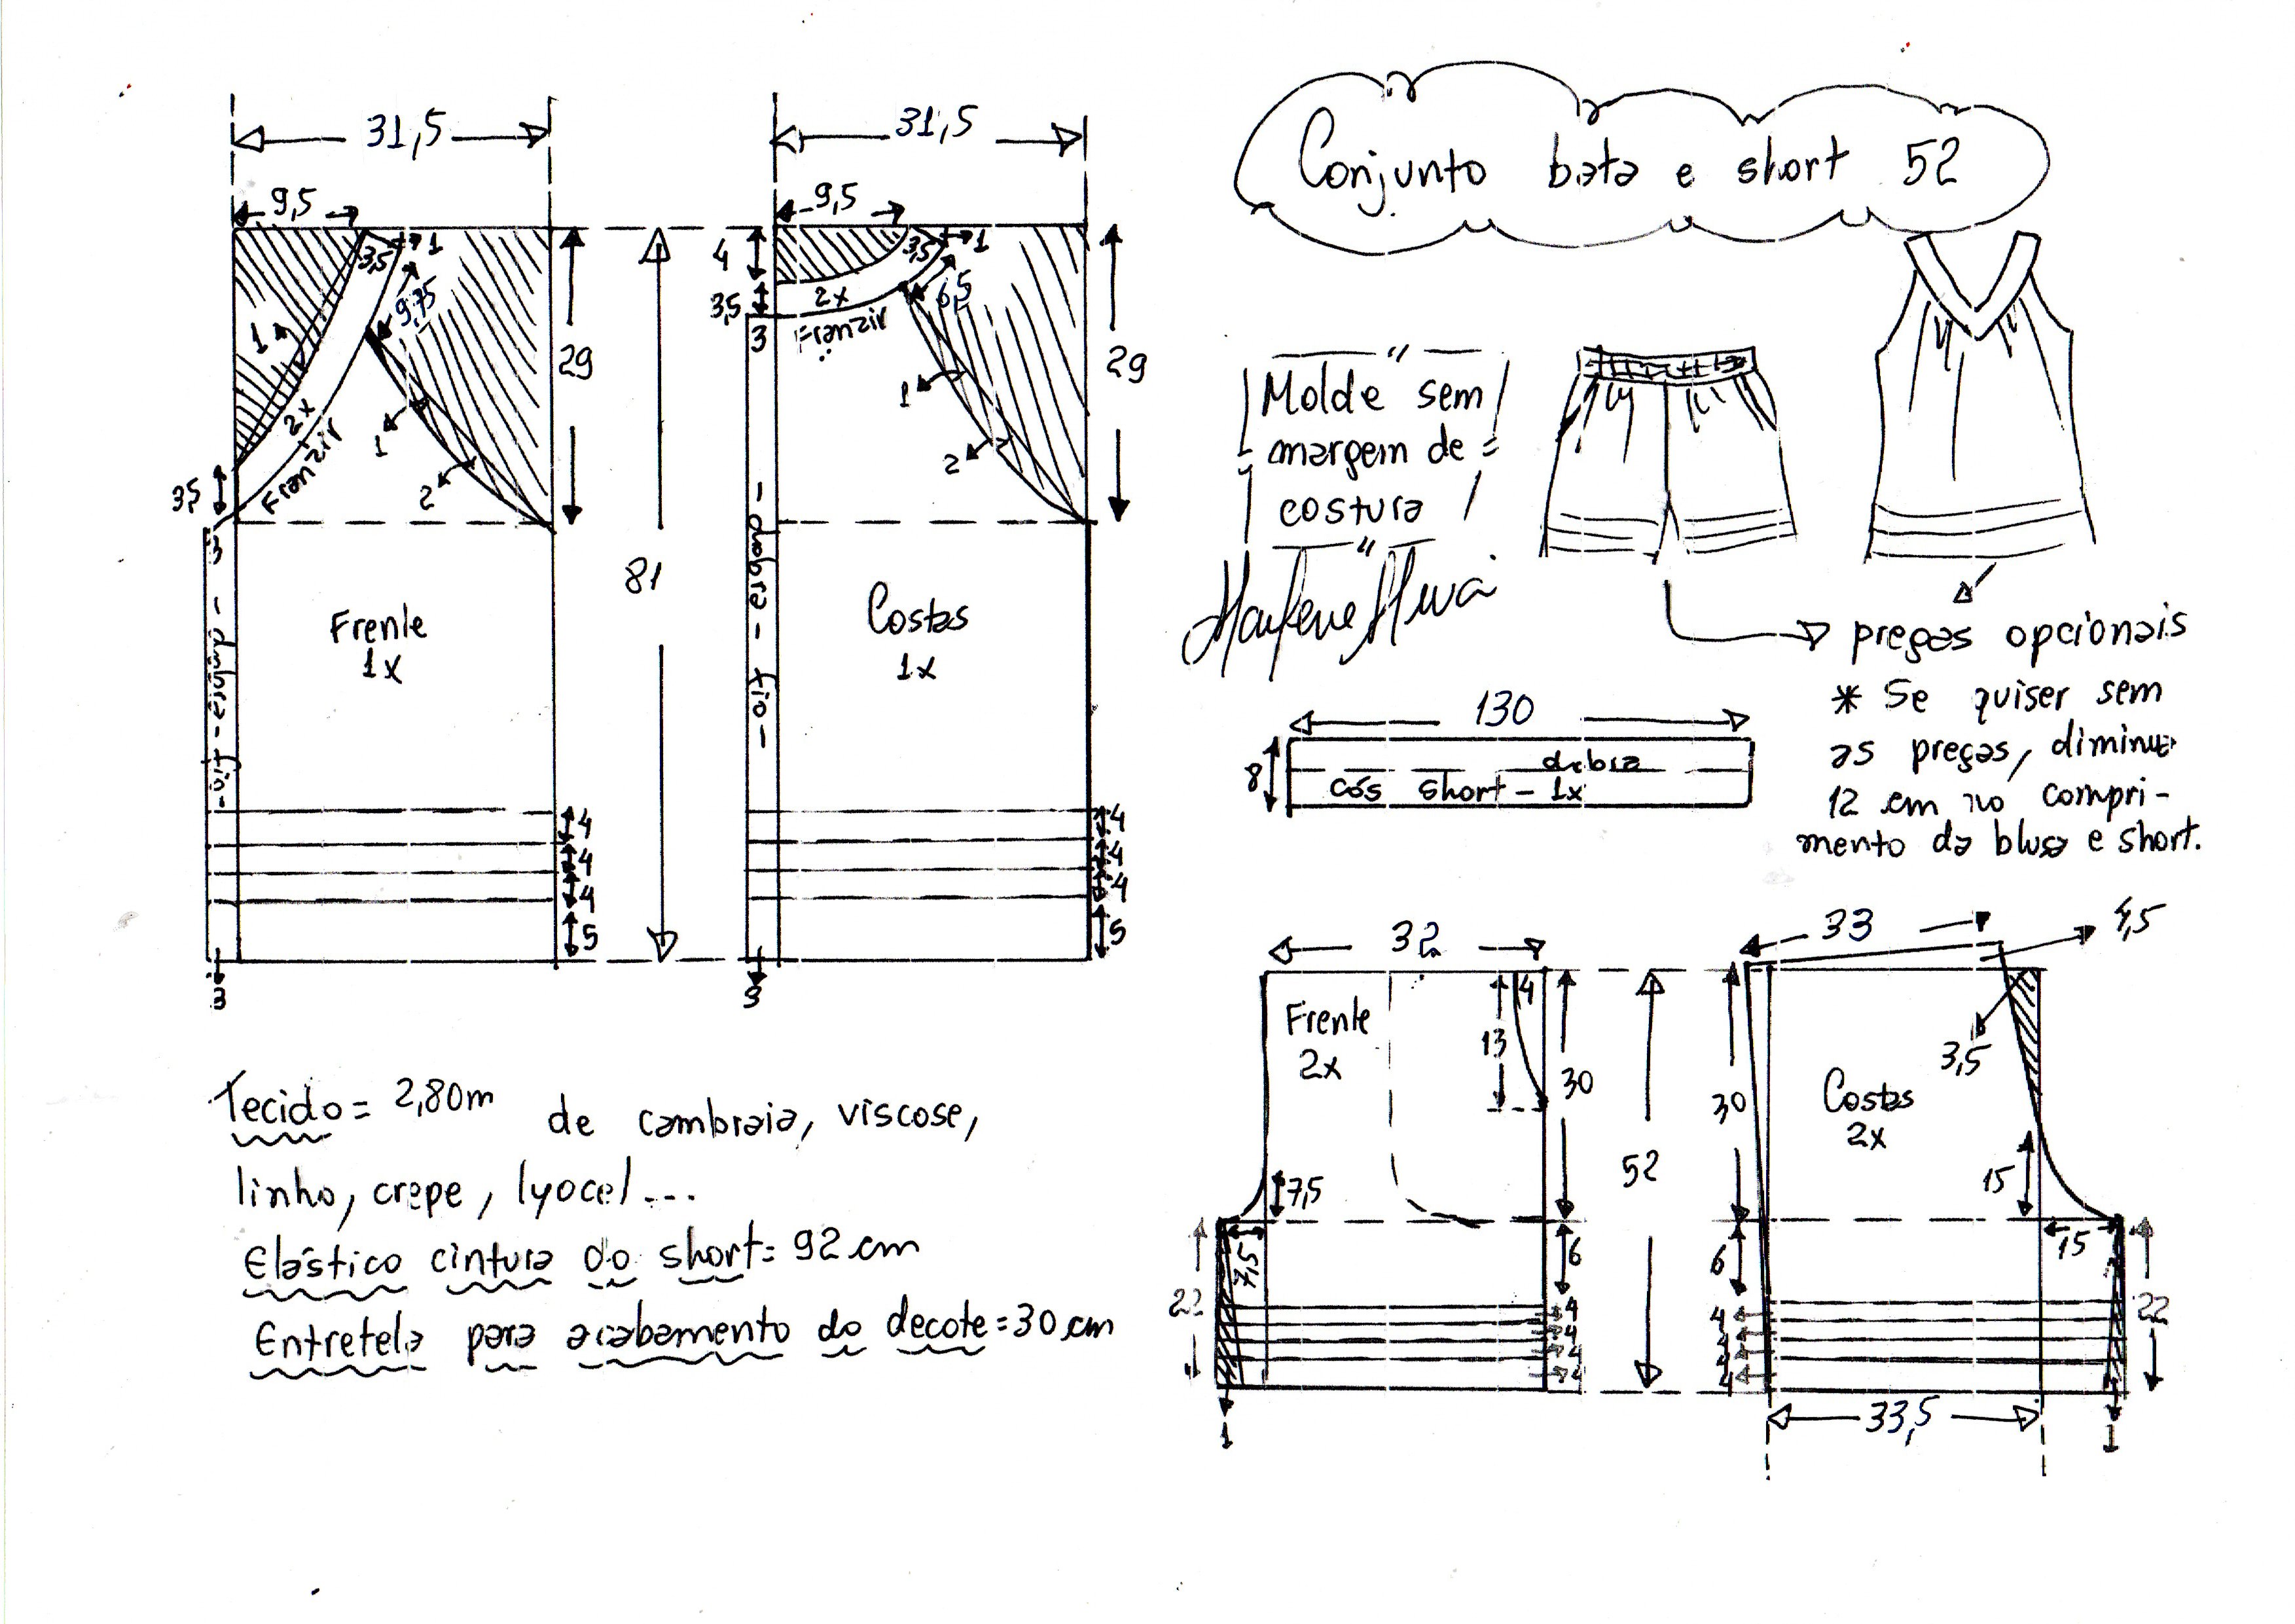 Conjunto bata e short 52
31,5
31,5
9,5
9,5
3,5
1
4
3,5
1
9,75
6,5
3,5
2x
1
Franzir
3
2x
Franzir
29
29
1
1
2
2
3,5
3
- dobra - fio -
- dobra - fio -
81
Frente
1x
Costas
1x
4
4
4
5
4
4
4
5
3
3
Molde sem
margem de
costura
Marlene Mukai
pregas opcionais
* Se quiser sem
as pregas, diminua
12 cm no compri-
mento da blusa e short.
130
8
dobra
cós short - 1x
Tecido = 2,80m de cambraia, viscose,
linho, crepe, lyocel...
Elástico cintura do short = 92 cm
Entretela para acabamento do decote = 30 cm
32
33
1,5
Frente
2x
4
13
30
52
30
3,5
Costas
2x
7,5
15
7,5
6
6
15
22
22
4
4
4
4
4
4
4
4
33,5
1
1